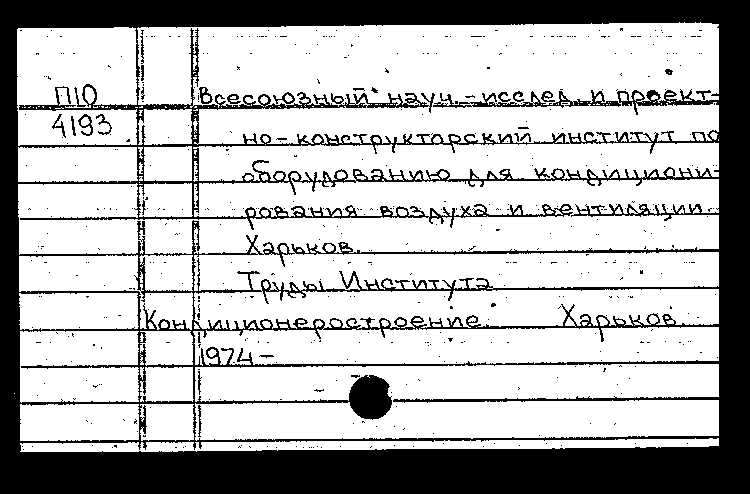 П10 Всесоюзный науч.-исслед. и проект-
4193
но-конструкторский институт по
оборудованию для кондициони-
рования воздуха и вентиляции.
Харьков.
Труды Института
Кондиционеростроение. Харьков.
1974-